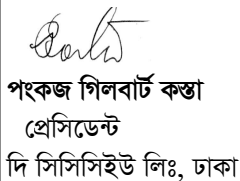 পংকজ গিলবার্ট কস্তা
প্রেসিডেন্ট
দি সিসিসিইউ লিঃ, ঢাকা